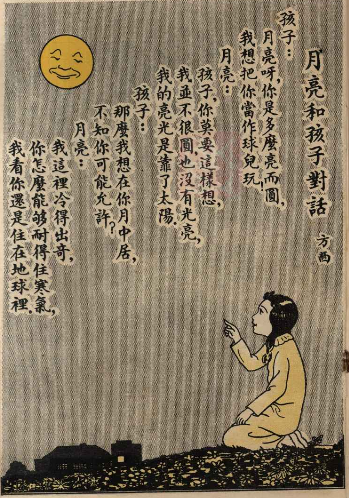 月亮和孩子對話
方西
孩子：
月亮呀，你是多麼亮而圓，
我想把你當作球兒玩。
月亮：
孩子，你莫要這樣想，
我並不很圓也沒有光亮，
我的亮光是靠了太陽。
孩子：
那麼我想在你月中居，
不知你可能允許？
月亮：
我這裡冷得出奇，
你怎麼能夠耐得住寒氣，
我看你還是住在地球裡。